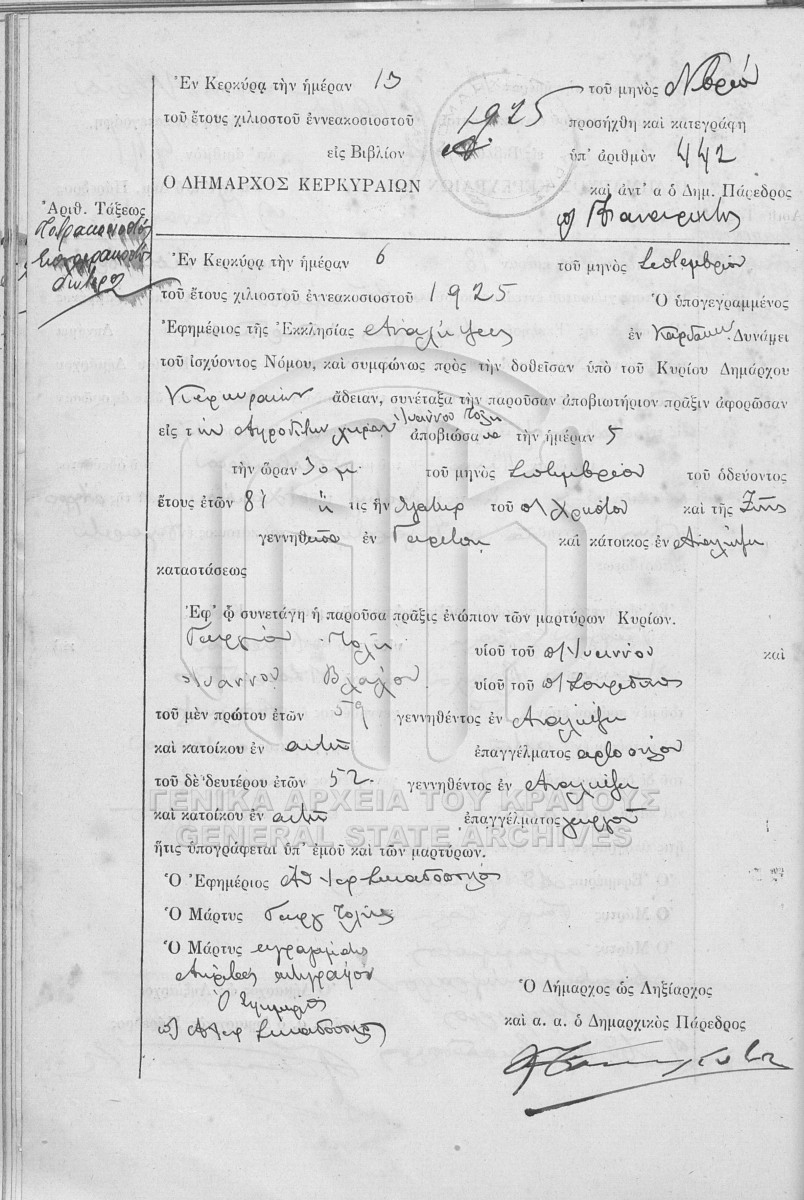 Ἐν Κερκύρᾳ τὴν ἡμέραν 13 τοῦ μηνὸς Νβρίου
τοῦ ἔτους χιλιοστοῦ ἐννεακοσιοστοῦ 1925 προσήχθη καὶ κατεγράφη
εἰς Βιβλίον ὑπ' ἀριθμὸν 442
Ο ΔΗΜΑΡΧΟΣ ΚΕΡΚΥΡΑΙΩΝ καὶ ἀντ' α ὁ Δημ. Πάρεδρος
Ἀριθ. Τάξεως
Ἐν Κερκύρᾳ τὴν ἡμέραν 6 τοῦ μηνὸς Σεπτεμβρίου
τοῦ ἔτους χιλιοστοῦ ἐννεακοσιοστοῦ 1925 Ὁ ὑπογεγραμμένος
Ἐφημέριος τῆς Ἐκκλησίας Αναλήψεως ἐν Δυνάμει
τοῦ ἰσχύοντος Νόμου, καὶ συμφώνως πρὸς τὴν δοθεῖσαν ὑπὸ τοῦ Κυρίου Δημάρχου
Κερκυραίων ἄδειαν, συνέταξα τὴν παροῦσαν ἀποβιωτήριον πρᾶξιν ἀφορῶσαν
εἰς την Αφροδίτην χήραν Ιωάννου ἀποβιώσασα τὴν ἡμέραν 5
τὴν ὥραν τοῦ μηνὸς Σεπτεμβρίου τοῦ ὁδεύοντος
ἔτους ἐτῶν 81 ἥ τις ἦν θυγάτηρ τοῦ Χρήστου καὶ τῆς Ζωῆς
γεννηθεῖσα ἐν καὶ κάτοικος ἐν Αναλήψει
καταστάσεως
Ἐφ' ᾧ συνετάγη ἡ παροῦσα πρᾶξις ἐνώπιον τῶν μαρτύρων Κυρίων.
Γεωργίου υἱοῦ τοῦ π/ Ιωάννου καὶ
Ιωάννου Βλάχου υἱοῦ τοῦ π/ Σπυρίδωνος
τοῦ μὲν πρώτου ἐτῶν 59 γεννηθέντος ἐν Αναλήψει
καὶ κατοίκου ἐν αυτῇ ἐπαγγέλματος αρτοπώλου
τοῦ δὲ δευτέρου ἐτῶν 52 γεννηθέντος ἐν Αναλήψει
καὶ κατοίκου ἐν αυτῇ ἐπαγγέλματος γεωργοῦ
ΓΕΝΙΚΑ ΑΡΧΕΙΑ ΤΟΥ ΚΡΑΤΟΥΣ
GENERAL STATE ARCHIVES
ἥτις ὑπογράφεται ὑπ' ἐμοῦ καὶ τῶν μαρτύρων.
Ὁ Ἐφημέριος
Ὁ Μάρτυς Γεωργ
Ὁ Μάρτυς αγράμματος
Ακριβές αντίγραφον
Ὁ Εφημέριος
Ὁ Δήμαρχος ὡς Ληξίαρχος
καὶ α. α. ὁ Δημαρχικὸς Πάρεδρος